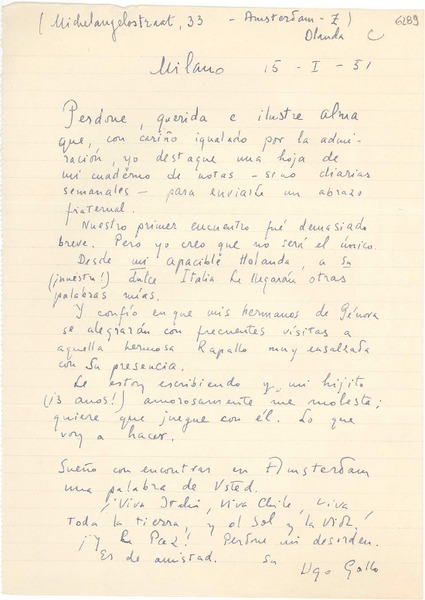 ( Michelangelostraat, 33 - Amsterdam - Z )
Olanda C
6289
Milano 15 - I - 51
Perdone, querida e ilustre alma
que, con cariño igualado por la admi-
ración, yo destaque una hoja de
mi cuaderno de notas - si no diarias
semanales - para enviarle un abrazo
fraternal.
Nuestro primer encuentro fué demasiado
breve. Pero yo creo que no será el único.
Desde mi apacible Holanda, a Su
(¡nuestra!) dulce Italia Le llegarán otras
palabras mías.
Y confío en que mis hermanos de Génova
se alegrarán con frecuentes visitas a
aquella hermosa Rapallo muy ensalzada
con Su presencia.
Le estoy escribiendo y mi hijito
(¡3 anos!) amorosamente me molesta;
quiere que juegue con él. Lo que
voy a hacer.
Sueño con encontrar en Amsterdam
una palabra de Usted.
¡Viva Italia, Viva Chile, viva
toda la tierra, y el Sol y la Vida!
¡Y la Paz! Perdone mi desorden.
Es de amistad. Su
Ugo Gallo